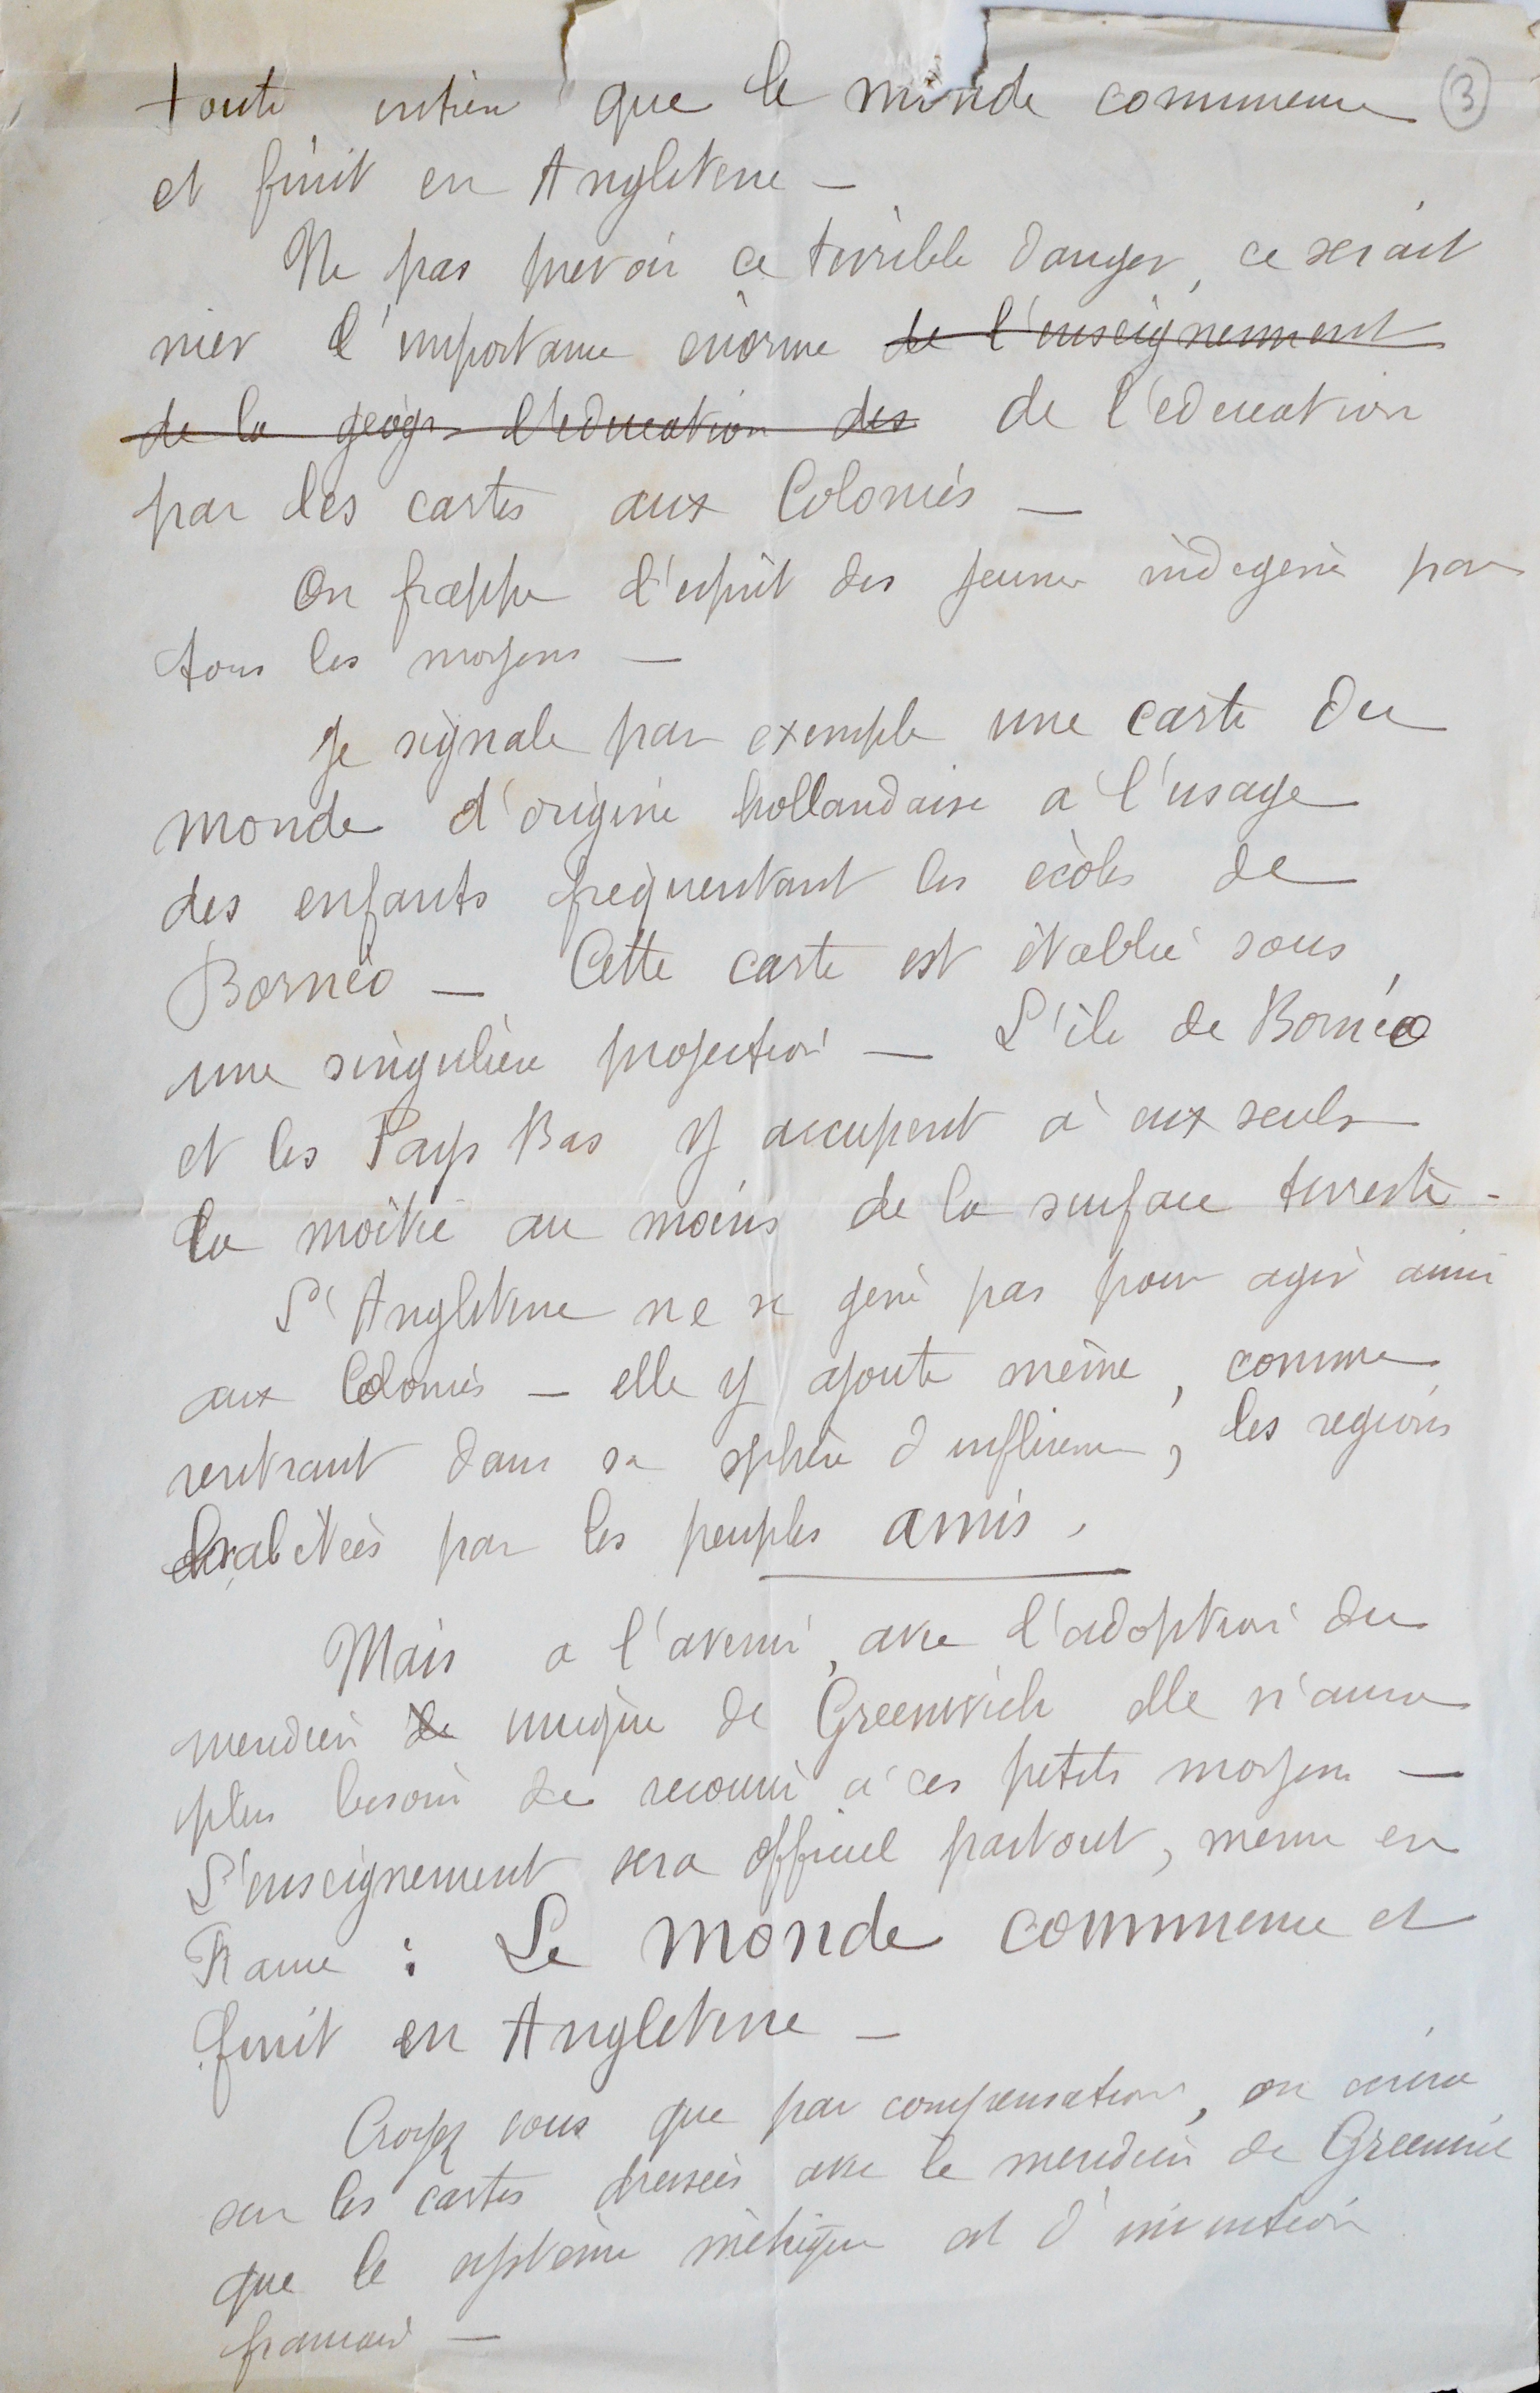 toute entière que le monde commence ③
et finit en Angleterre —
Ne pas prevoir ce terrible danger, ce serait
nier l'importance énorme de l'enseignement
de la géogr l'education des de l'education
par les cartes aux Colonies —
On frappe l'esprit des jeunes indigenes par
tous les moyens —
Je signale par exemple une carte du
monde d'origine hollandaise a l'usage
des enfants frequentant les écoles de
Bornéo — Cette carte est établie sous
une singulière projection — L'île de Bornéo
et les Pays Bas y occupent à eux seuls
la moitié au moins de la surface terrestre -
L'Angleterre ne se gene pas pour agir ainsi
aux Colonies — elle y ajoute même, comme
rentrant dans sa sphère d'influence, les regions
habitées par les peuples amis.
Mais a l'avenir, avec l'adoption du
meridien de unique de Greenwich elle n'aura
plus besoin de recourir à ces petits moyens —
L'enseignement sera officiel partout, meme en
France : Le monde commence et
finit en Angleterre —
Croyez vous que par compensation, on écrira
sur les cartes dressées avec le meridien de Greenwich
que le système métrique est d'invention
française —